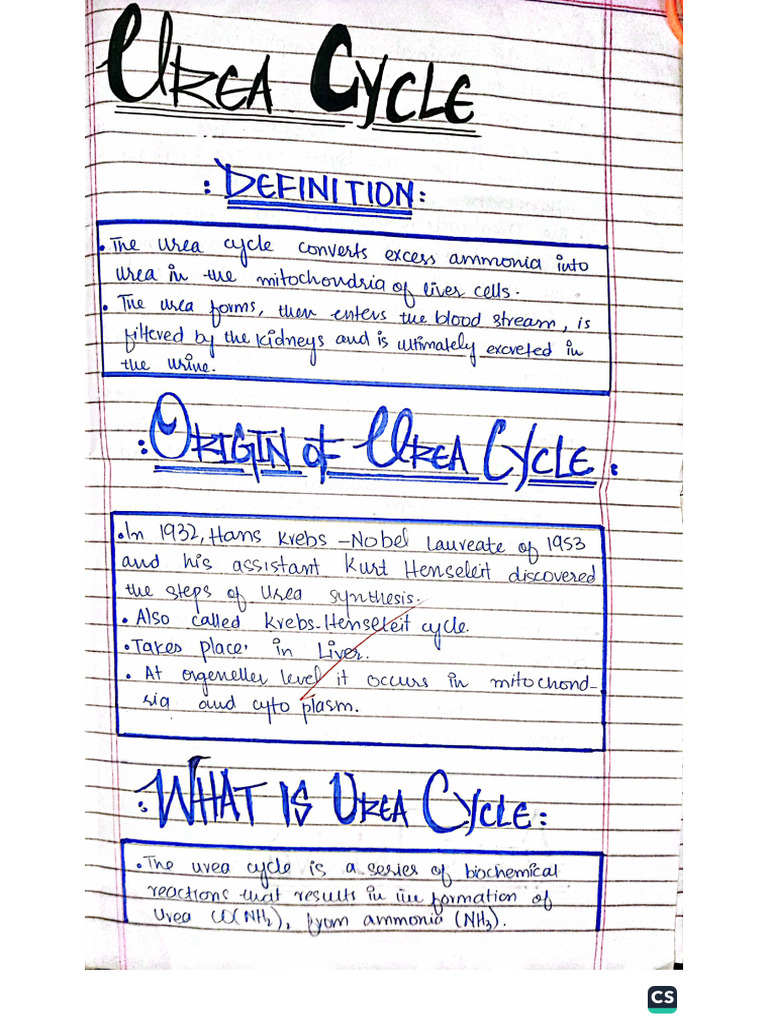 UREA CYCLE
: DEFINITION:
• The urea cycle converts excess ammonia into
urea in the mitochondria of liver cells.
• The urea forms, then enters the blood stream, is
filtered by the kidneys and is ultimately excreted in
the urine.
: ORIGIN of UREA CYCLE :
• In 1932, Hans Krebs - Nobel Laureate of 1953
and his assistant Kurt Henseleit discovered
the steps of Urea synthesis.
• Also called Krebs-Henseleit cycle.
• Takes place in Liver.
• At orgeneller level it occurs in mitochond-
ria and cyto plasm.
: WHAT IS UREA CYCLE:
• The urea cycle is a series of biochemical
reactions that results in the formation of
Urea CO(NH₂), from ammonia (NH₃).
CS